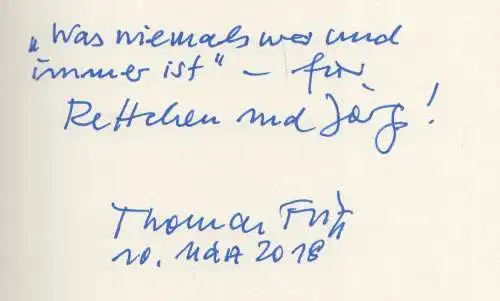 „Was niemals war und
immer ist“ – für
Rettchen und Jörg!
Thomas Fritz
10. März 2018